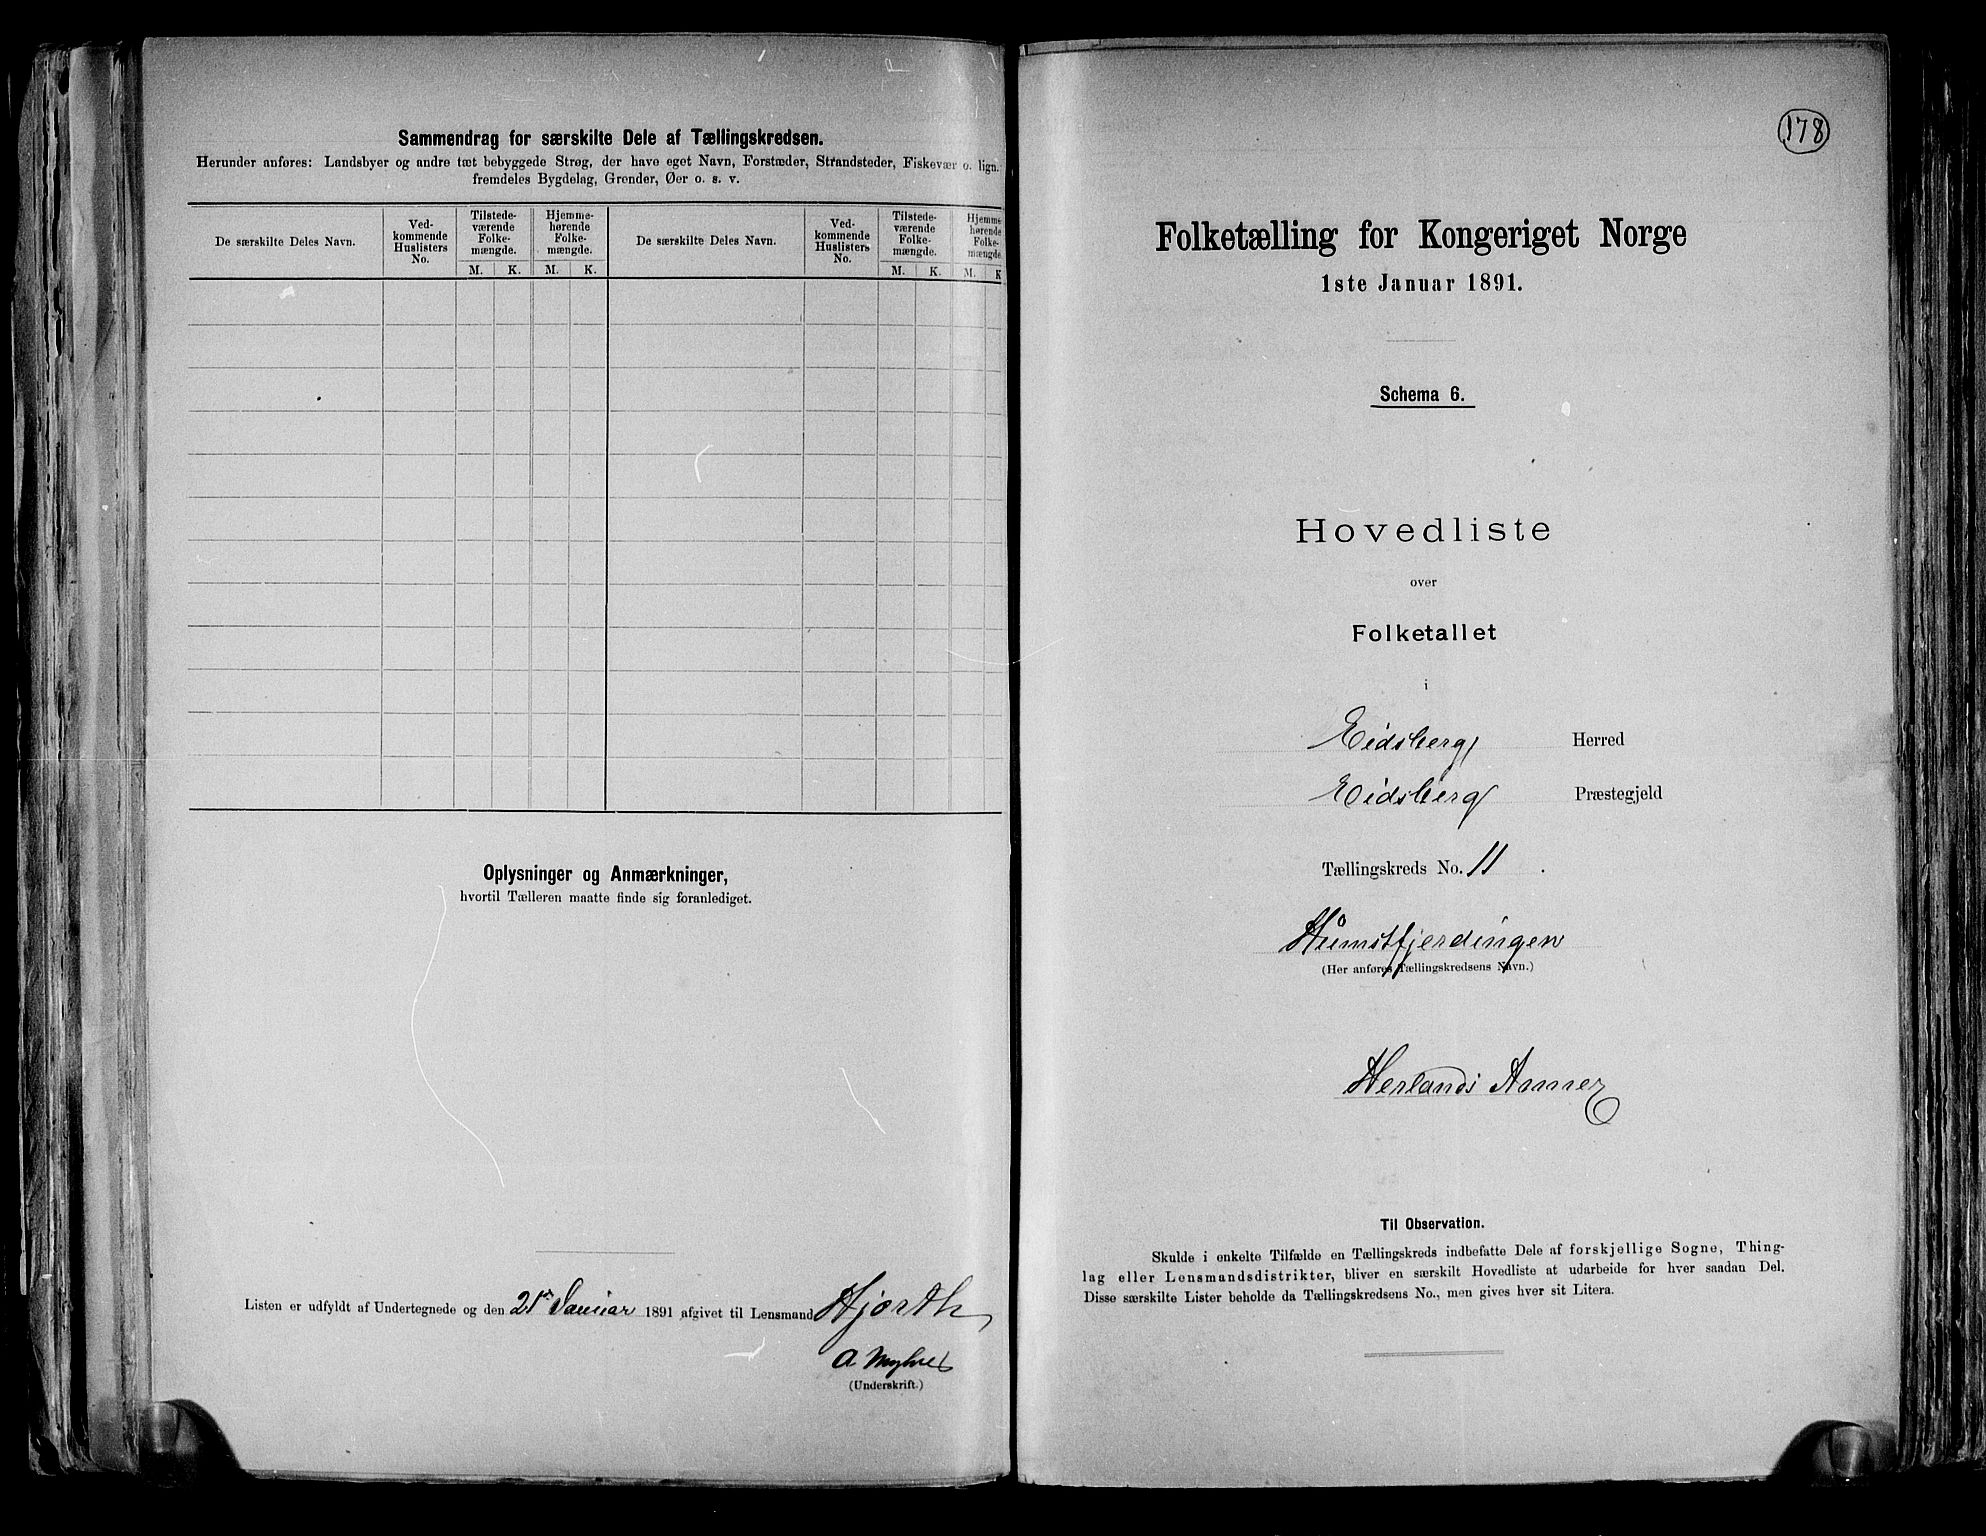 Sammendrag for særskilte Dele af Tællingskredsen.
Herunder anføres: Landsbyer og andre tæt bebyggede Strøg, der have eget Navn, Forstæder, Strandsteder, Fiskevær o. lign.
fremdeles Bygdelag, Grender, Øer o. s. v.
De særskilte Deles Navn.
Ved-
kommende
Huslisters
No.
Tilstede-
værende
Folke-
mængde.
M. K.
Hjemme-
hørende
Folke-
mængde.
M. K.
De særskilte Deles Navn.
Ved-
kommende
Huslisters
No.
Tilstede-
værende
Folke-
mængde.
M. K.
Hjemme-
hørende
Folke-
mængde
M. K
Oplysninger og Anmærkninger,
hvortil Tælleren maatte finde sig foranlediget.
Listen er udfyldt af Undertegnede og den 21de Januar 1891 afgivet til Lensmand Hjorth
(Underskrift.)
178
Folketælling for Kongeriget Norge
1ste Januar 1891.
Schema 6.
Hovedliste
over
Folketallet
i
Eidsberg Herred
Eidsberg Præstegjeld
Tællingskreds No. 11.
(Her anføres Tællingskredsens Navn.)
Herlands Annex
Til Observation.
Skulde i enkelte Tilfælde en Tællingskreds indbefatte Dele af forskjellige Sogne, Thing-
lag eller Lensmandsdistrikter, bliver en særskilt Hovedliste at udarbeide for hver saadan Del.
Disse særskilte Lister beholde da Tællingskredsens No., men gives hver sit Litera.